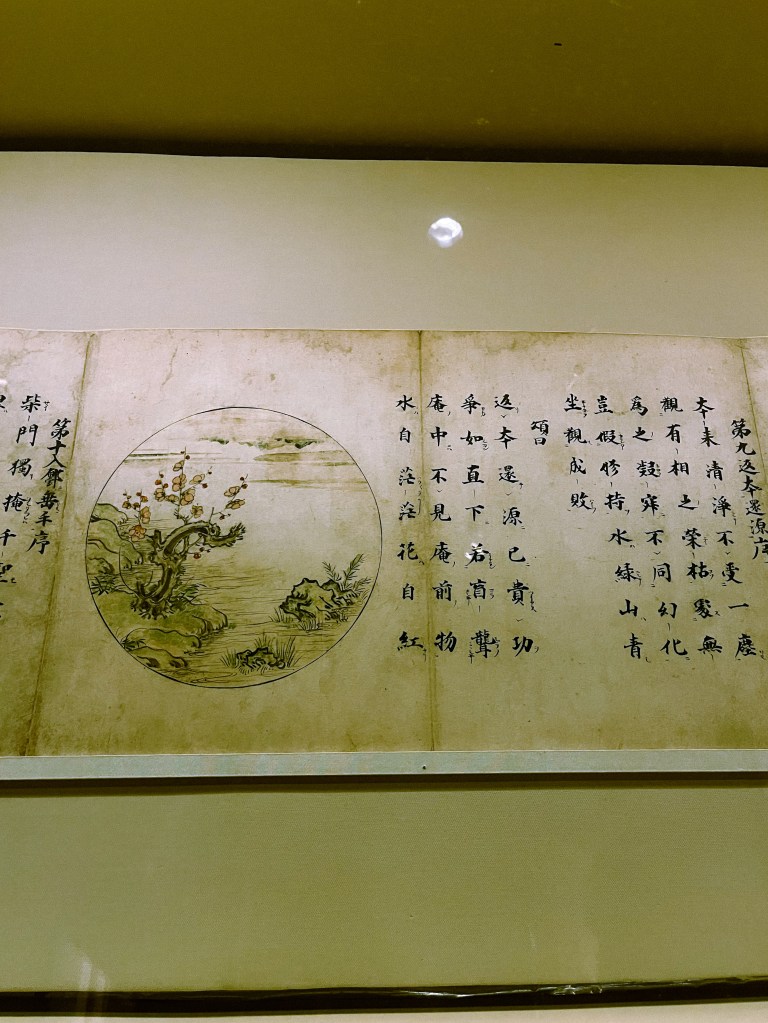 第九返本還源序
本来清淨不受一塵
觀有相之榮枯處無
爲之凝寂不同幻化
豈假修持水緑山青
坐觀成敗
頌曰
返本還源已貴功
争如直下若盲聾
庵中不見庵前物
水自茫茫花自紅
第十入鄽垂手序
柴門獨掩千聖